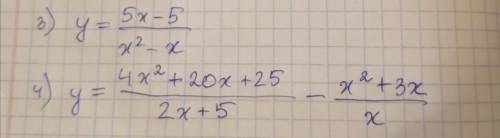 3) y = (5x-5)/(x² - x)
4) y = (4x² + 20x + 25)/(2x + 5) - (x² + 3x)/x